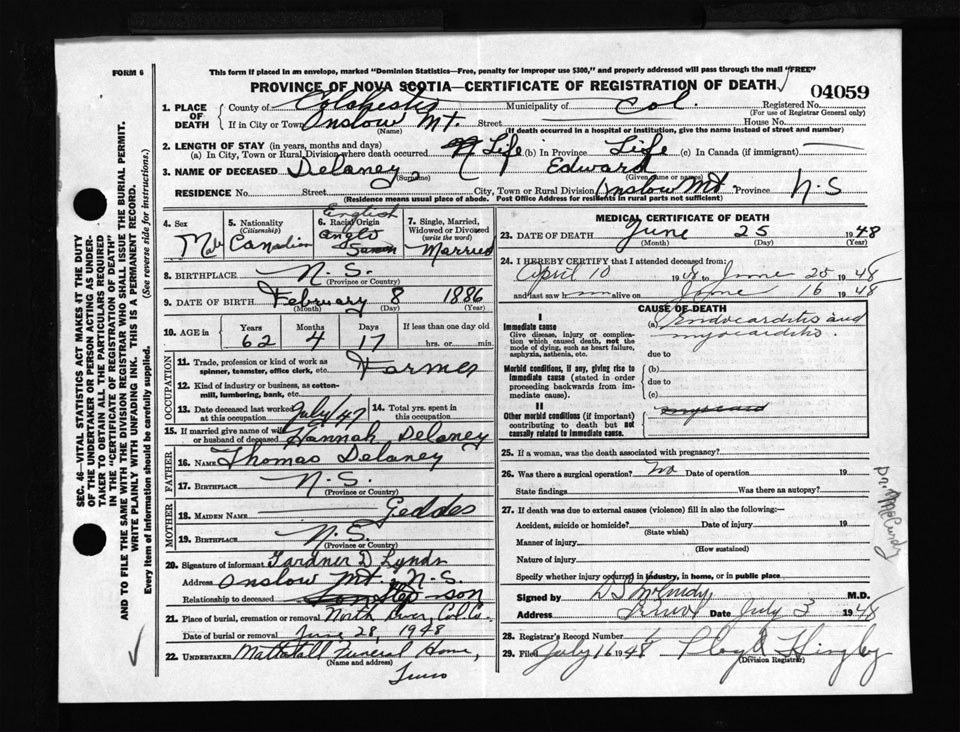 FORM 6
This form if placed in an envelope, marked "Dominion Statistics—Free, penalty for improper use $300," and properly addressed will pass through the mail "FREE"
PROVINCE OF NOVA SCOTIA—CERTIFICATE OF REGISTRATION OF DEATH
04059
1. PLACE OF DEATH
County of Colchester Municipality of Col. Registered No.
(For use of Registrar General only)
If in City or Town Onslow Mt. Street House No.
(Name) (If death occurred in a hospital or institution, give the name instead of street and number)
2. LENGTH OF STAY (in years, months and days)
(a) In City, Town or Rural Division where death occurred Life (b) In Province Life (c) In Canada (if immigrant)
3. NAME OF DECEASED Delaney, Edward
(Surname) (Given name or names)
RESIDENCE No. Street City, Town or Rural Division Onslow Mt Province N-S
(Residence means usual place of abode. Post Office Address for residents in rural parts not sufficient)
4. Sex Male
5. Nationality (Citizenship) Canadian
6. Racial Origin English Anglo
7. Single, Married, Widowed or Divorced (write the word) Married
8. BIRTHPLACE N.S.
(Province or Country)
9. DATE OF BIRTH February 8 1886
(Month) (Day) (Year)
10. AGE in Years Months Days If less than one day old
62 4 17 hrs. or min.
OCCUPATION
11. Trade, profession or kind of work as spinner, teamster, office clerk, etc. Farmer
12. Kind of industry or business, as cotton-mill, lumbering, bank, etc.
13. Date deceased last worked at this occupation July/47
14. Total yrs. spent in this occupation
15. If married give name of wife or husband of deceased Hannah Delaney
FATHER
16. NAME Thomas Delaney
17. BIRTHPLACE N.S.
(Province or Country)
MOTHER
18. MAIDEN NAME Geddes
19. BIRTHPLACE N.S.
(Province or Country)
20. Signature of informant Gardner D Lynds
Address Onslow Mt. N.S.
Relationship to deceased Step-son
21. Place of burial, cremation or removal North River, Col. Co.
Date of burial or removal June 28, 1948
22. UNDERTAKER Mattatall Funeral Home,
(Name and address)
Truro
MEDICAL CERTIFICATE OF DEATH
23. DATE OF DEATH June 25 1948
(Month) (Day) (Year)
24. I HEREBY CERTIFY that I attended deceased from:
April 10 1948 to June 25 1948
and last saw him alive on June 16 1948
CAUSE OF DEATH
I
Immediate cause
Give disease, injury or complication which caused death, not the mode of dying, such as heart failure, asphyxia, asthenia, etc.
(a) Endocarditis and
myocarditis.
due to
Morbid conditions, if any, giving rise to immediate cause (stated in order proceeding backwards from immediate cause).
(b)
due to
(c)
II
Other morbid conditions (if important) contributing to death but not causally related to immediate cause.
25. If a woman, was the death associated with pregnancy?
26. Was there a surgical operation? No Date of operation 19
State findings Was there an autopsy?
27. If death was due to external causes (violence) fill in also the following:—
Accident, suicide or homicide? Date of injury 19
(State which)
Manner of injury
(How sustained)
Nature of injury
Specify whether injury occurred in industry, in home, or in public place
Signed by D S McCurdy M.D.
Address Truro Date July 3 1948
28. Registrar's Record Number 6
29. Filed July 16 1948 Floyd Hingley
(Division Registrar)
Dr. McCurdy
SEC. 46—VITAL STATISTICS ACT MAKES IT THE DUTY
OF THE UNDERTAKER OR PERSON ACTING AS UNDER-
TAKER TO OBTAIN ALL THE PARTICULARS REQUIRED
IN THE "CERTIFICATE OF REGISTRATION OF DEATH"
AND TO FILE THE SAME WITH THE DIVISION REGISTRAR WHO SHALL ISSUE THE BURIAL PERMIT.
WRITE PLAINLY WITH UNFADING INK. THIS IS A PERMANENT RECORD.
Every item of information should be carefully supplied. (See reverse side for instructions.)